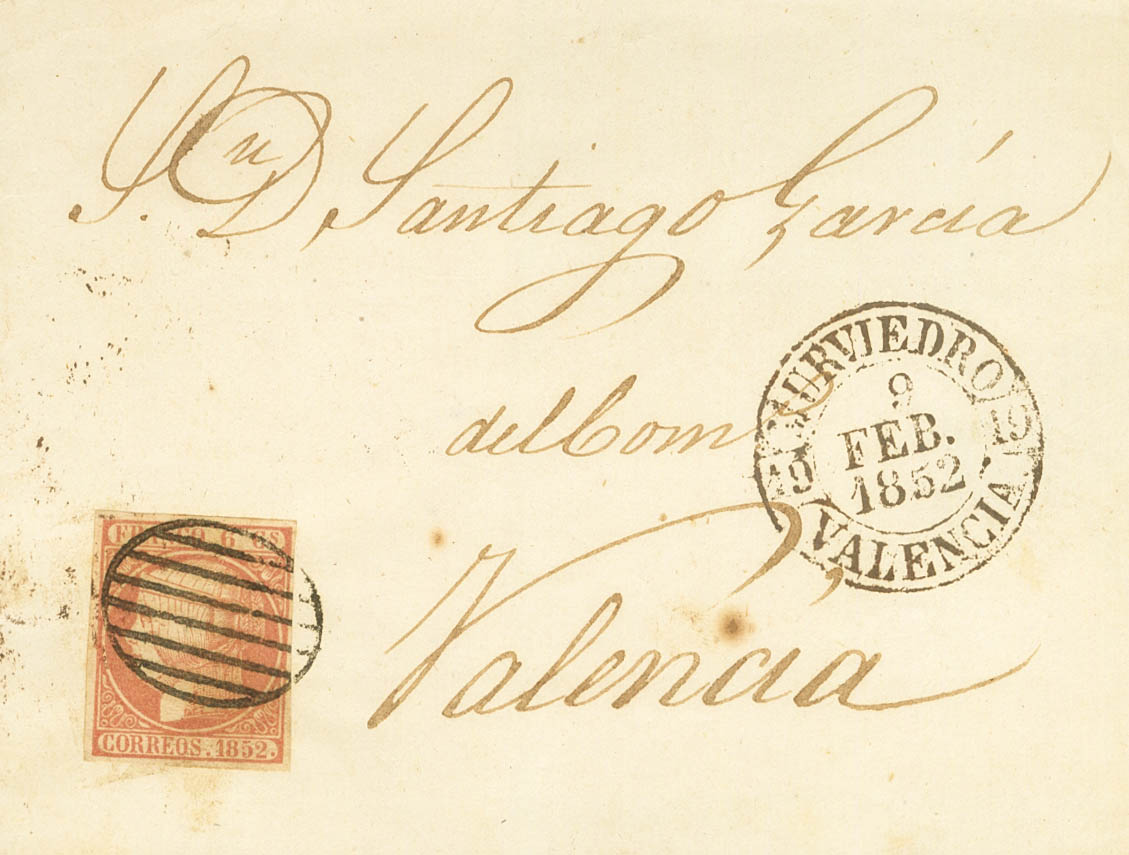 Sn. D. Santiago García
del Com
Valencia
MURVIEDRO
9
FEB.
1852
19 19
VALENCIA
FRANCO 6 Cs
CORREOS. 1852.